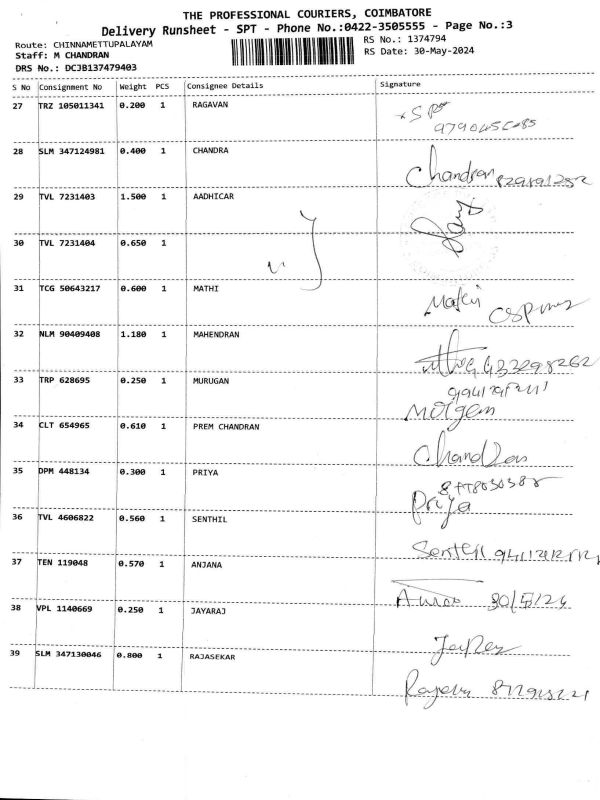 THE PROFESSIONAL COURIERS, COIMBATORE
Delivery Runsheet - SPT - Phone No.:0422-3505555 - Page No.:3
Route: CHINNAMETTUPALAYAM
RS No.: 1374794
Staff: M CHANDRAN
RS Date: 30-May-2024
DRS No.: DCJB137479403
S No Consignment No Weight PCS Consignee Details Signature
27 TRZ 105011341 0.200 1 RAGAVAN
28 SLM 347124981 0.400 1 CHANDRA
Chandran
29 TVL 7231403 1.500 1 AADHICAR
30 TVL 7231404 0.650 1
31 TCG 50643217 0.600 1 MATHI
32 NLM 90409408 1.180 1 MAHENDRAN
33 TRP 628695 0.250 1 MURUGAN
34 CLT 654965 0.610 1 PREM CHANDRAN
35 DPM 448134 0.300 1 PRIYA
Priya
36 TVL 4606822 0.560 1 SENTHIL
37 TEN 119048 0.570 1 ANJANA
30/5/24
38 VPL 1140669 0.250 1 JAYARAJ
39 SLM 347130046 0.800 1 RAJASEKAR